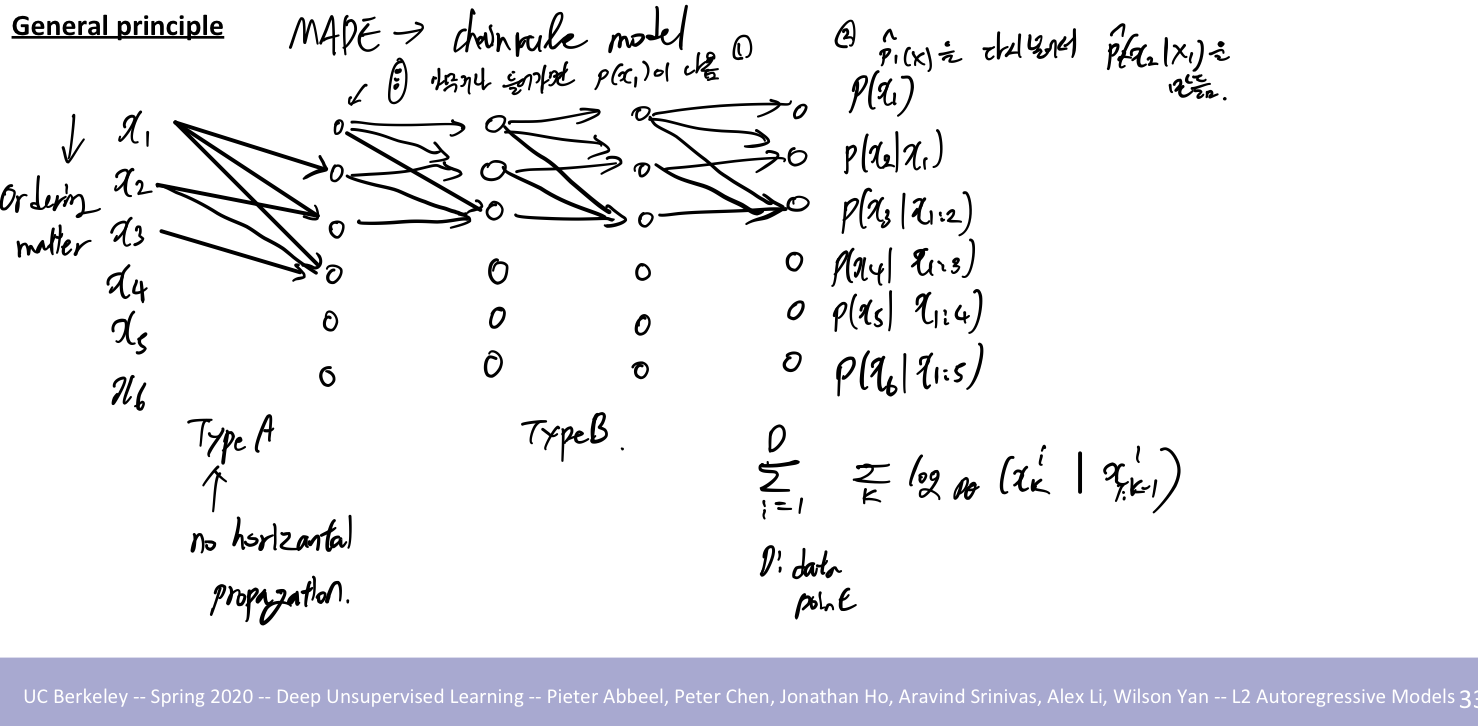 General principle
MADE → chain rule model
아무거나 들어가면 p(x₁)이 나옴 ①
② p̂₁(x)을 다시 넣어서 p̂(x₂|x₁)을
만듦.
Ordering
matter
x₁
x₂
x₃
x₄
x₅
x₆
p(x₁)
p(x₂|x₁)
p(x₃|x₁:₂)
p(x₄|x₁:₃)
p(x₅|x₁:₄)
p(x₆|x₁:₅)
Type A
Type B.
no horizantal
propagation.
D
∑ ∑ log pθ (xᵢₖ | xⁱ₁:ₖ₋₁)
i=1 K
D: data
point
UC Berkeley -- Spring 2020 -- Deep Unsupervised Learning -- Pieter Abbeel, Peter Chen, Jonathan Ho, Aravind Srinivas, Alex Li, Wilson Yan -- L2 Autoregressive Models 33